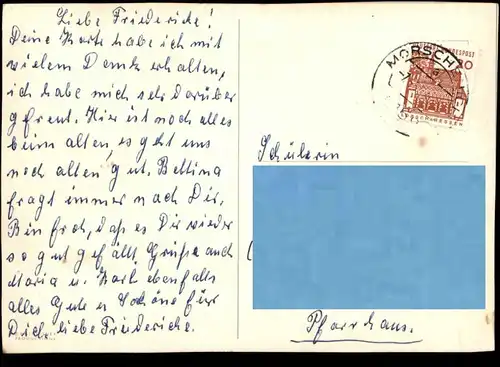 Liebe Friedericke!
Deine Karte habe ich mit
vielem Dank erhalten,
ich habe mich sehr darüber
gefreut. Hier ist noch alles
beim alten, es geht uns
noch allen gut. Bettina
fragt immer nach Dir.
Bin froh, daß es Dir wieder
so gut gefällt. Grüße auch
Maria u. Karl ebenfalls
alles Gute u. Schöne für
Dich liebe Friedericke.
MORSCH
BUNDESPOST
20
LORSCH HESSEN
Schülerin
Pfarrhaus.